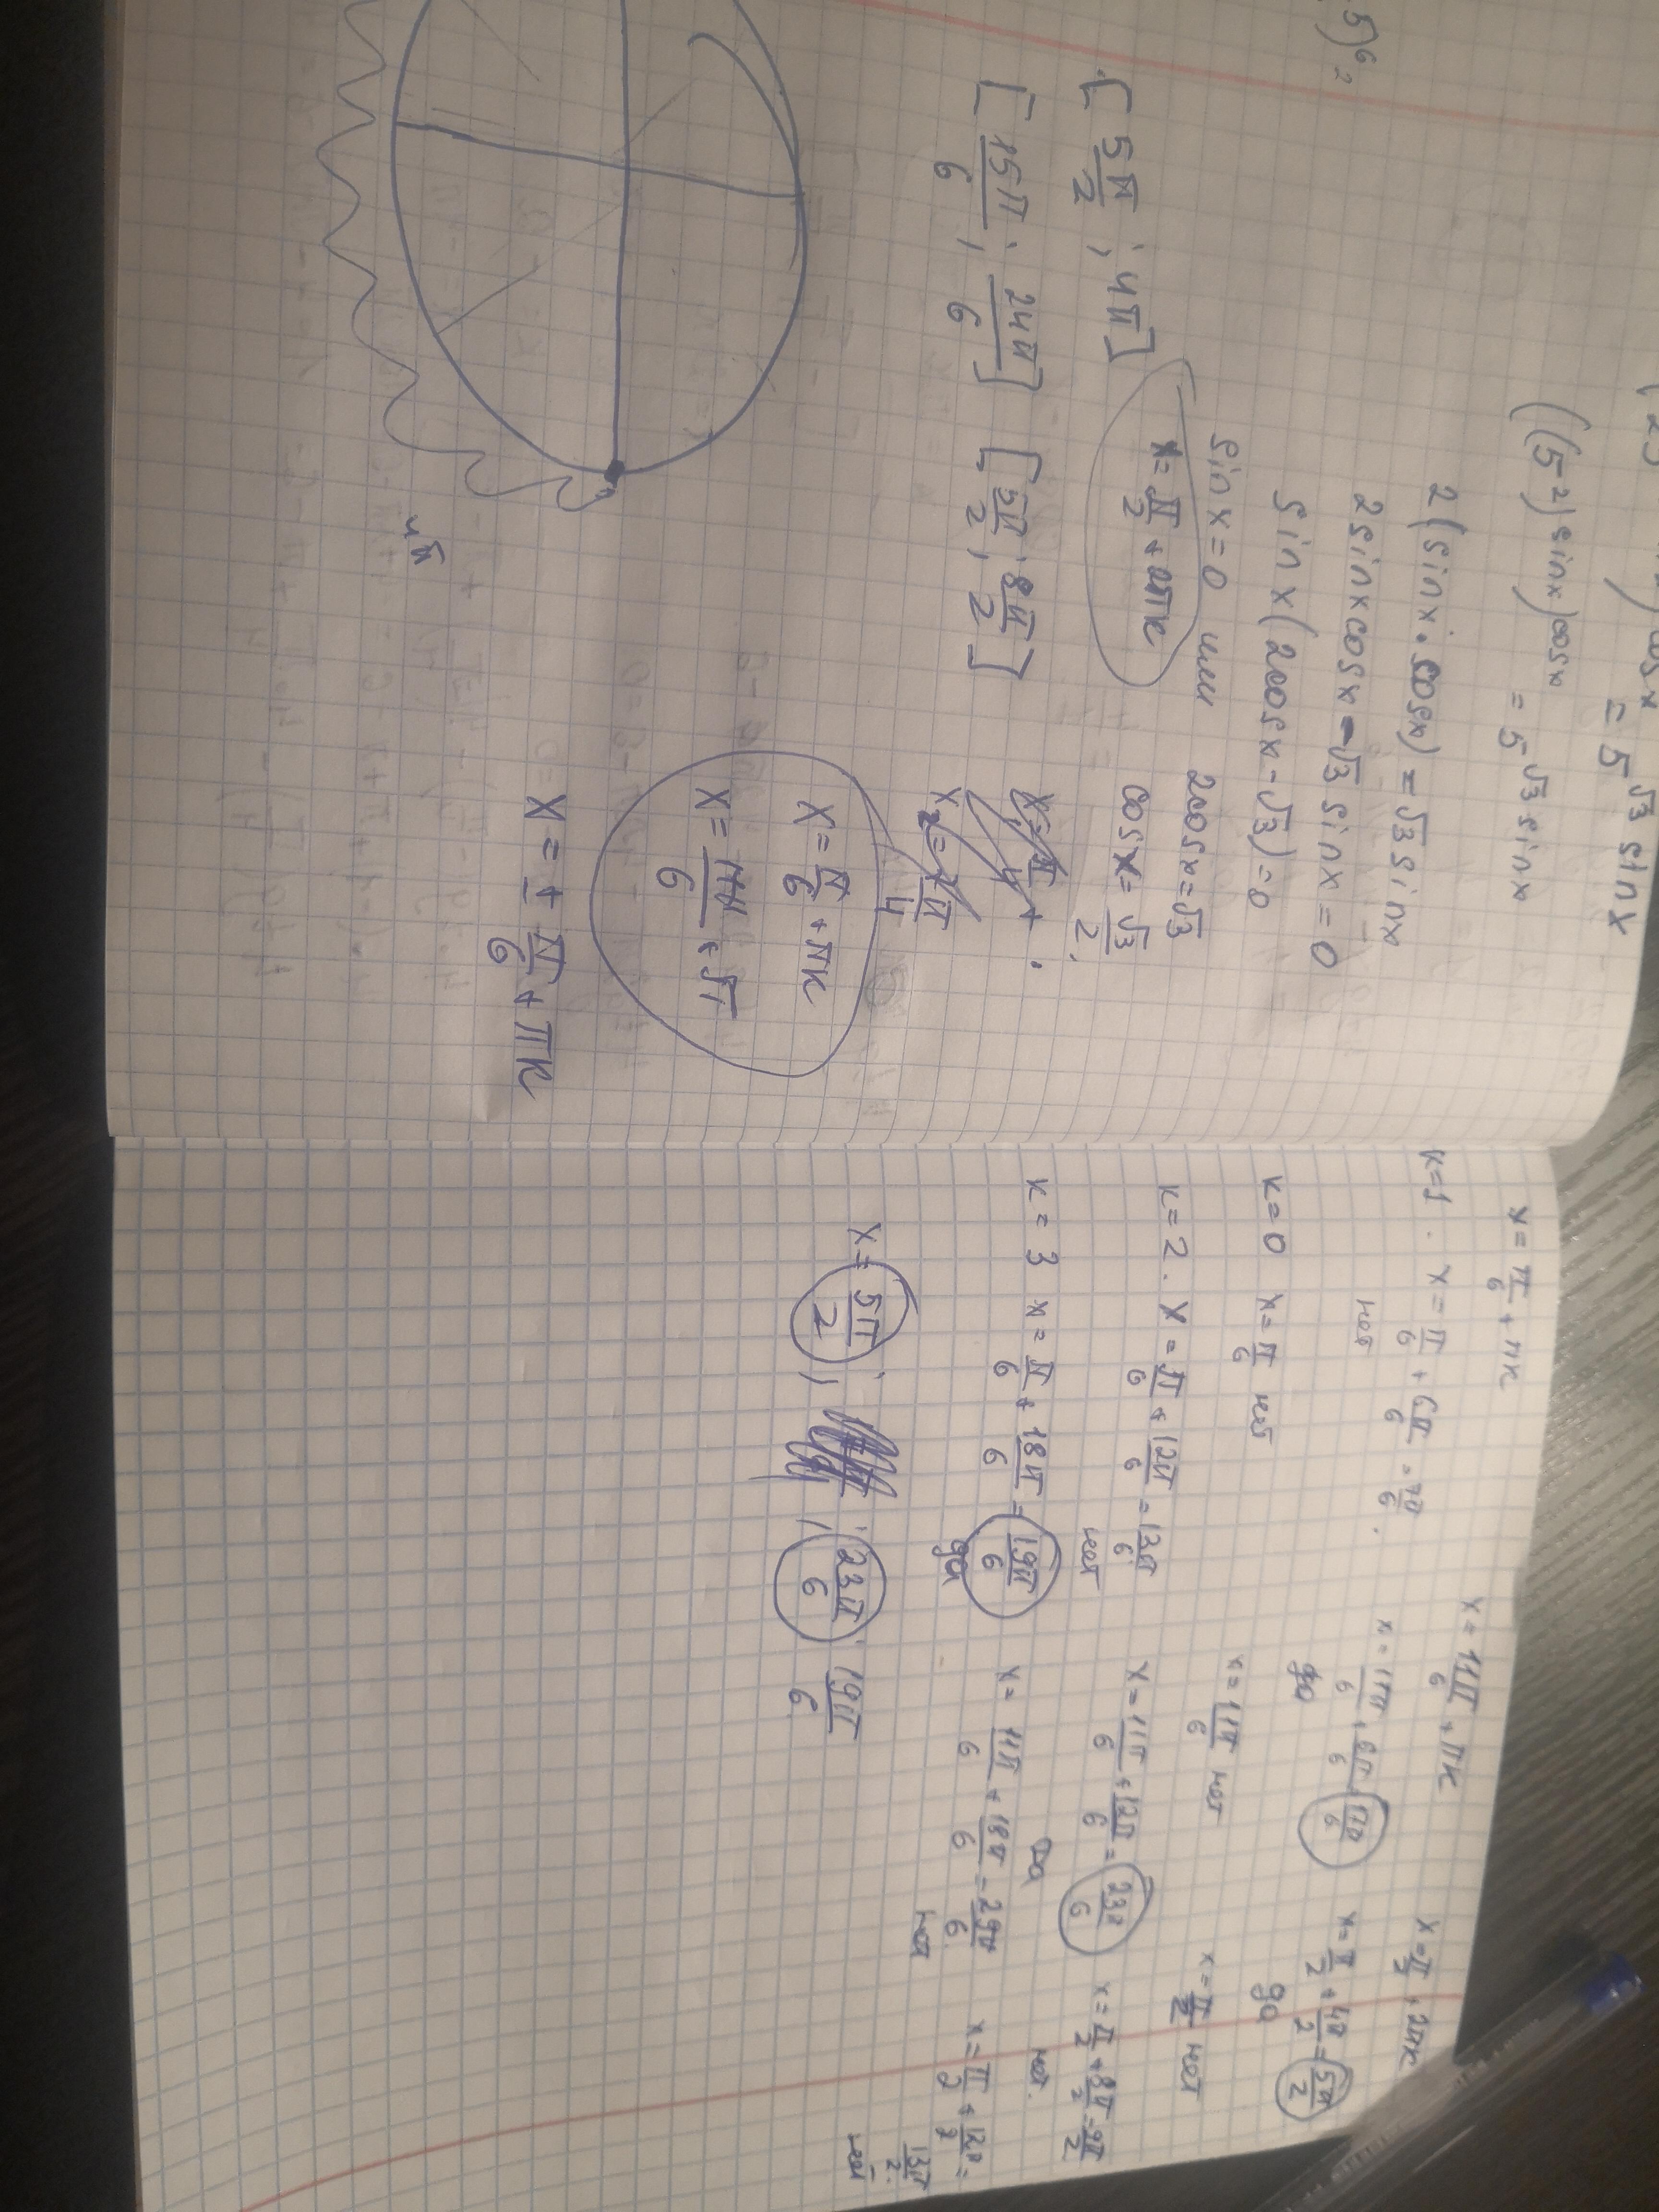 5)6 2
(25
) cos x = 5^√3 sin x
((5^2)^sin x)^cos x = 5^√3 sin x
2(sin x · cos x) = √3 sin x
2 sin x cos x - √3 sin x = 0
sin x (2cos x - √3) = 0
sin x = 0 или 2cos x = √3
x = π/2 + 2πk
cos x = √3/2
[5π/2; 4π]
[15π/6; 24π/6] [5π/2; 8π/2]
x = π/6 + πk
x = 11π/6 + π
x = ± π/6 + πk
4π
x = π/6 + πk
x = 11π/6 + πk
x = π/2 + 2πk
k=1. x = π/6 + 6π/6 = 7π/6.
нет
x = 11π/6 + 6π/6 17π/6
да
x = π/2 + 4π/2 = 5π/2
да
k=0 x = π/6 нет
x = 11π/6 нет
x = π/2 нет
k=2. x = π/6 + 12π/6 = 13π/6
нет
x = 11π/6 + 12π/6 = 23π/6
да
x = π/2 + 8π/2 = 9π/2
нет.
k = 3 x = π/6 + 18π/6 = 19π/6
да
x = 11π/6 + 18π/6 = 29π/6
нет
x = π/2 + 12π/2 = 13π/2.
нет
x = 5π/2; ; 23π/6; 19π/6